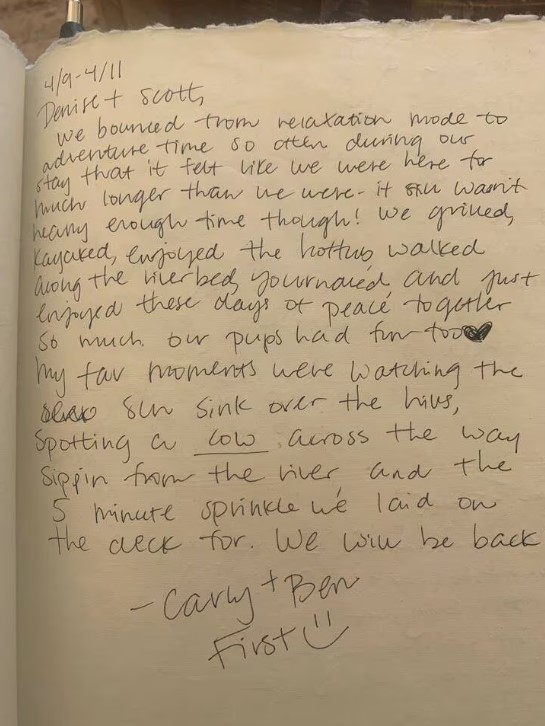 4/9-4/11
Denise + Scott,
We bounced from relaxation mode to
adventure time so often during our
stay that it felt like we were here for
much longer than we were - it still wasn't
nearly enough time though! We grilled,
kayaked, enjoyed the hottub, walked
along the riverbed, journaled, and just
enjoyed these days of peace together
so much. Our pups had fun too
My fav moments were watching the
sun sink over the hills,
spotting a cow across the way
sippin from the river, and the
5 minute sprinkle we laid on
the deck for. We will be back
- Carly + Ben
First